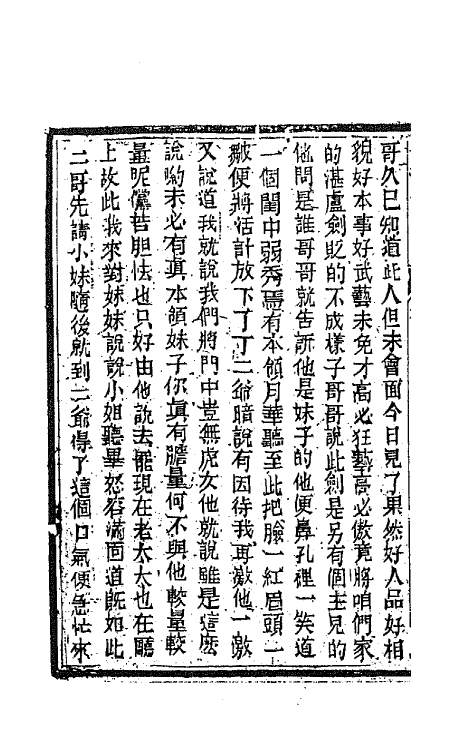 哥久已知道此人但未會面今日見了果然好人品好相
貌好本事好武藝未免才高必狂藝高必傲竟將咱們家
的湛盧劍貶的不成樣子哥哥說此劍是另有個主兒的
他問是誰哥哥就告訴他是妹子的他便鼻孔裡一笑道
一個閨中弱秀焉有本領月華聽至此把臉一紅眉頭一
皺便將活計放下了丁二爺暗說有因待我再激他一激
又說道我就說我們將門中豈無虎女他就說雖是這麽
說喲未必有眞本領妹子你眞有膽量何不與他較量較
量呢儻若胆怯也只好由他說去罷現在老太太也在廳
上故此我來對妹妹說說小姐聽畢怒容滿面道旣如此
二哥先請小妹隨後就到二爺得了這個口氣便急忙來